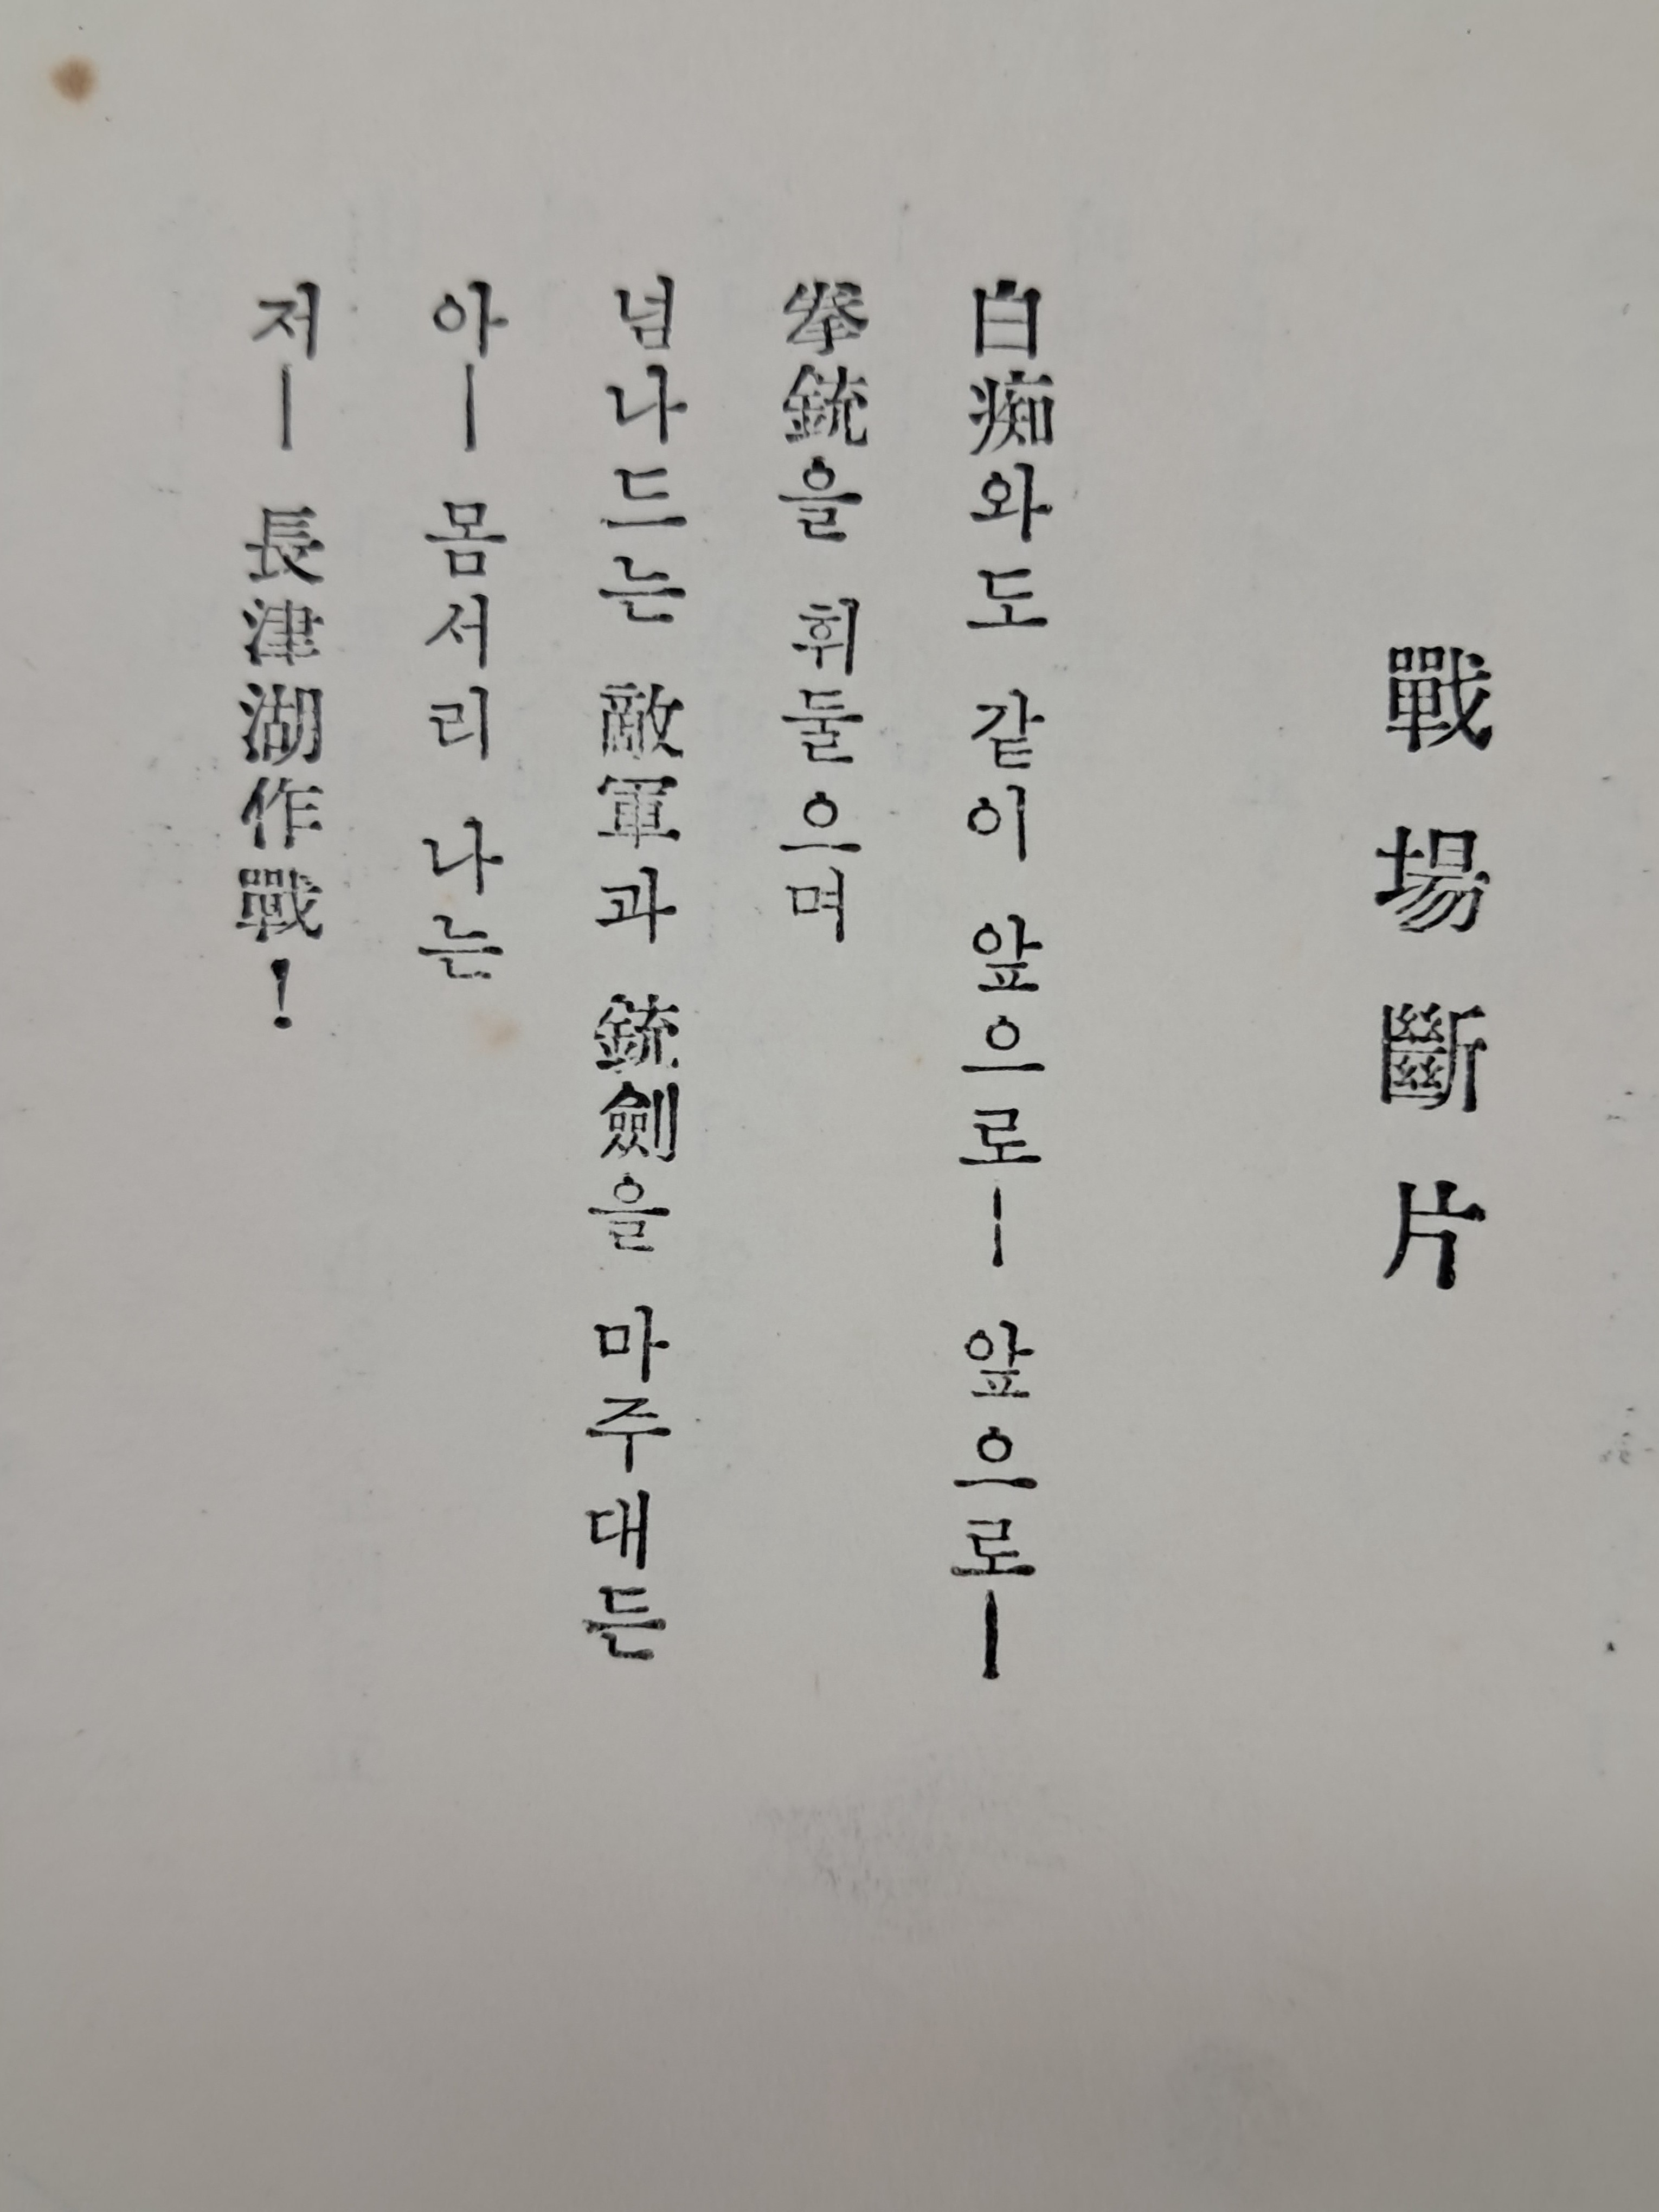 戰場斷片
白痴와도 같이 앞으로— 앞으로—
拳銃을 휘둘으며
넘나드는 敵軍과 銃劍을 마주대든
아— 몸서리 나는
저— 長津湖作戰!